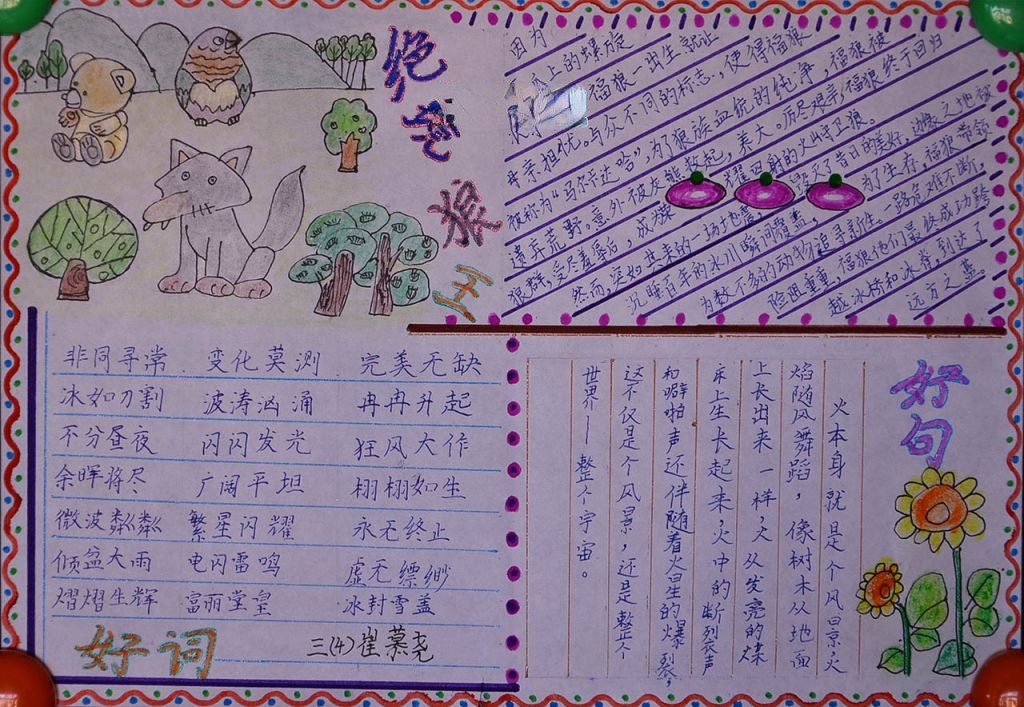 绝境狼王
因为
爪上的螺旋
福狼一出生就让
母亲担忧。与众不同的标志,使得福狼
被称为“马尔卡达哈”,为了狼族血统的纯净,福狼被
遗弃荒野。意外被灰熊救起,养大。历尽艰辛,福狼终于回归
狼群,受尽羞辱后,成
然而,突如其来的一场地震,毁灭了昔日的美好,
沉睡百年的冰川瞬间覆盖,
为数不多的动物追寻新的。路危难不断,
险阻重重,福狼他们最终成功跨
越冰桥和冰脊,到达了
远方之蓝。
非同寻常 变化莫测 完美无缺
冰如刀割 波涛汹涌 冉冉升起
不分昼夜 闪闪发光 狂风大作
余晖将尽 广阔平坦 栩栩如生
微波粼粼 繁星闪耀 永无终止
倾盆大雨 电闪雷鸣 虚无缥缈
熠熠生辉 富丽堂皇 冰封雪盖
好词
三(4)崔慕尧
好句
火本身就是个风景,火
焰随风舞蹈,像树木从地面
上长出来一样,火从发亮的煤
床上生长起来,火中的断裂声
和噼啪声还伴随着火星的爆裂,
这不仅是个风景,还是整个
世界——整个宇宙。